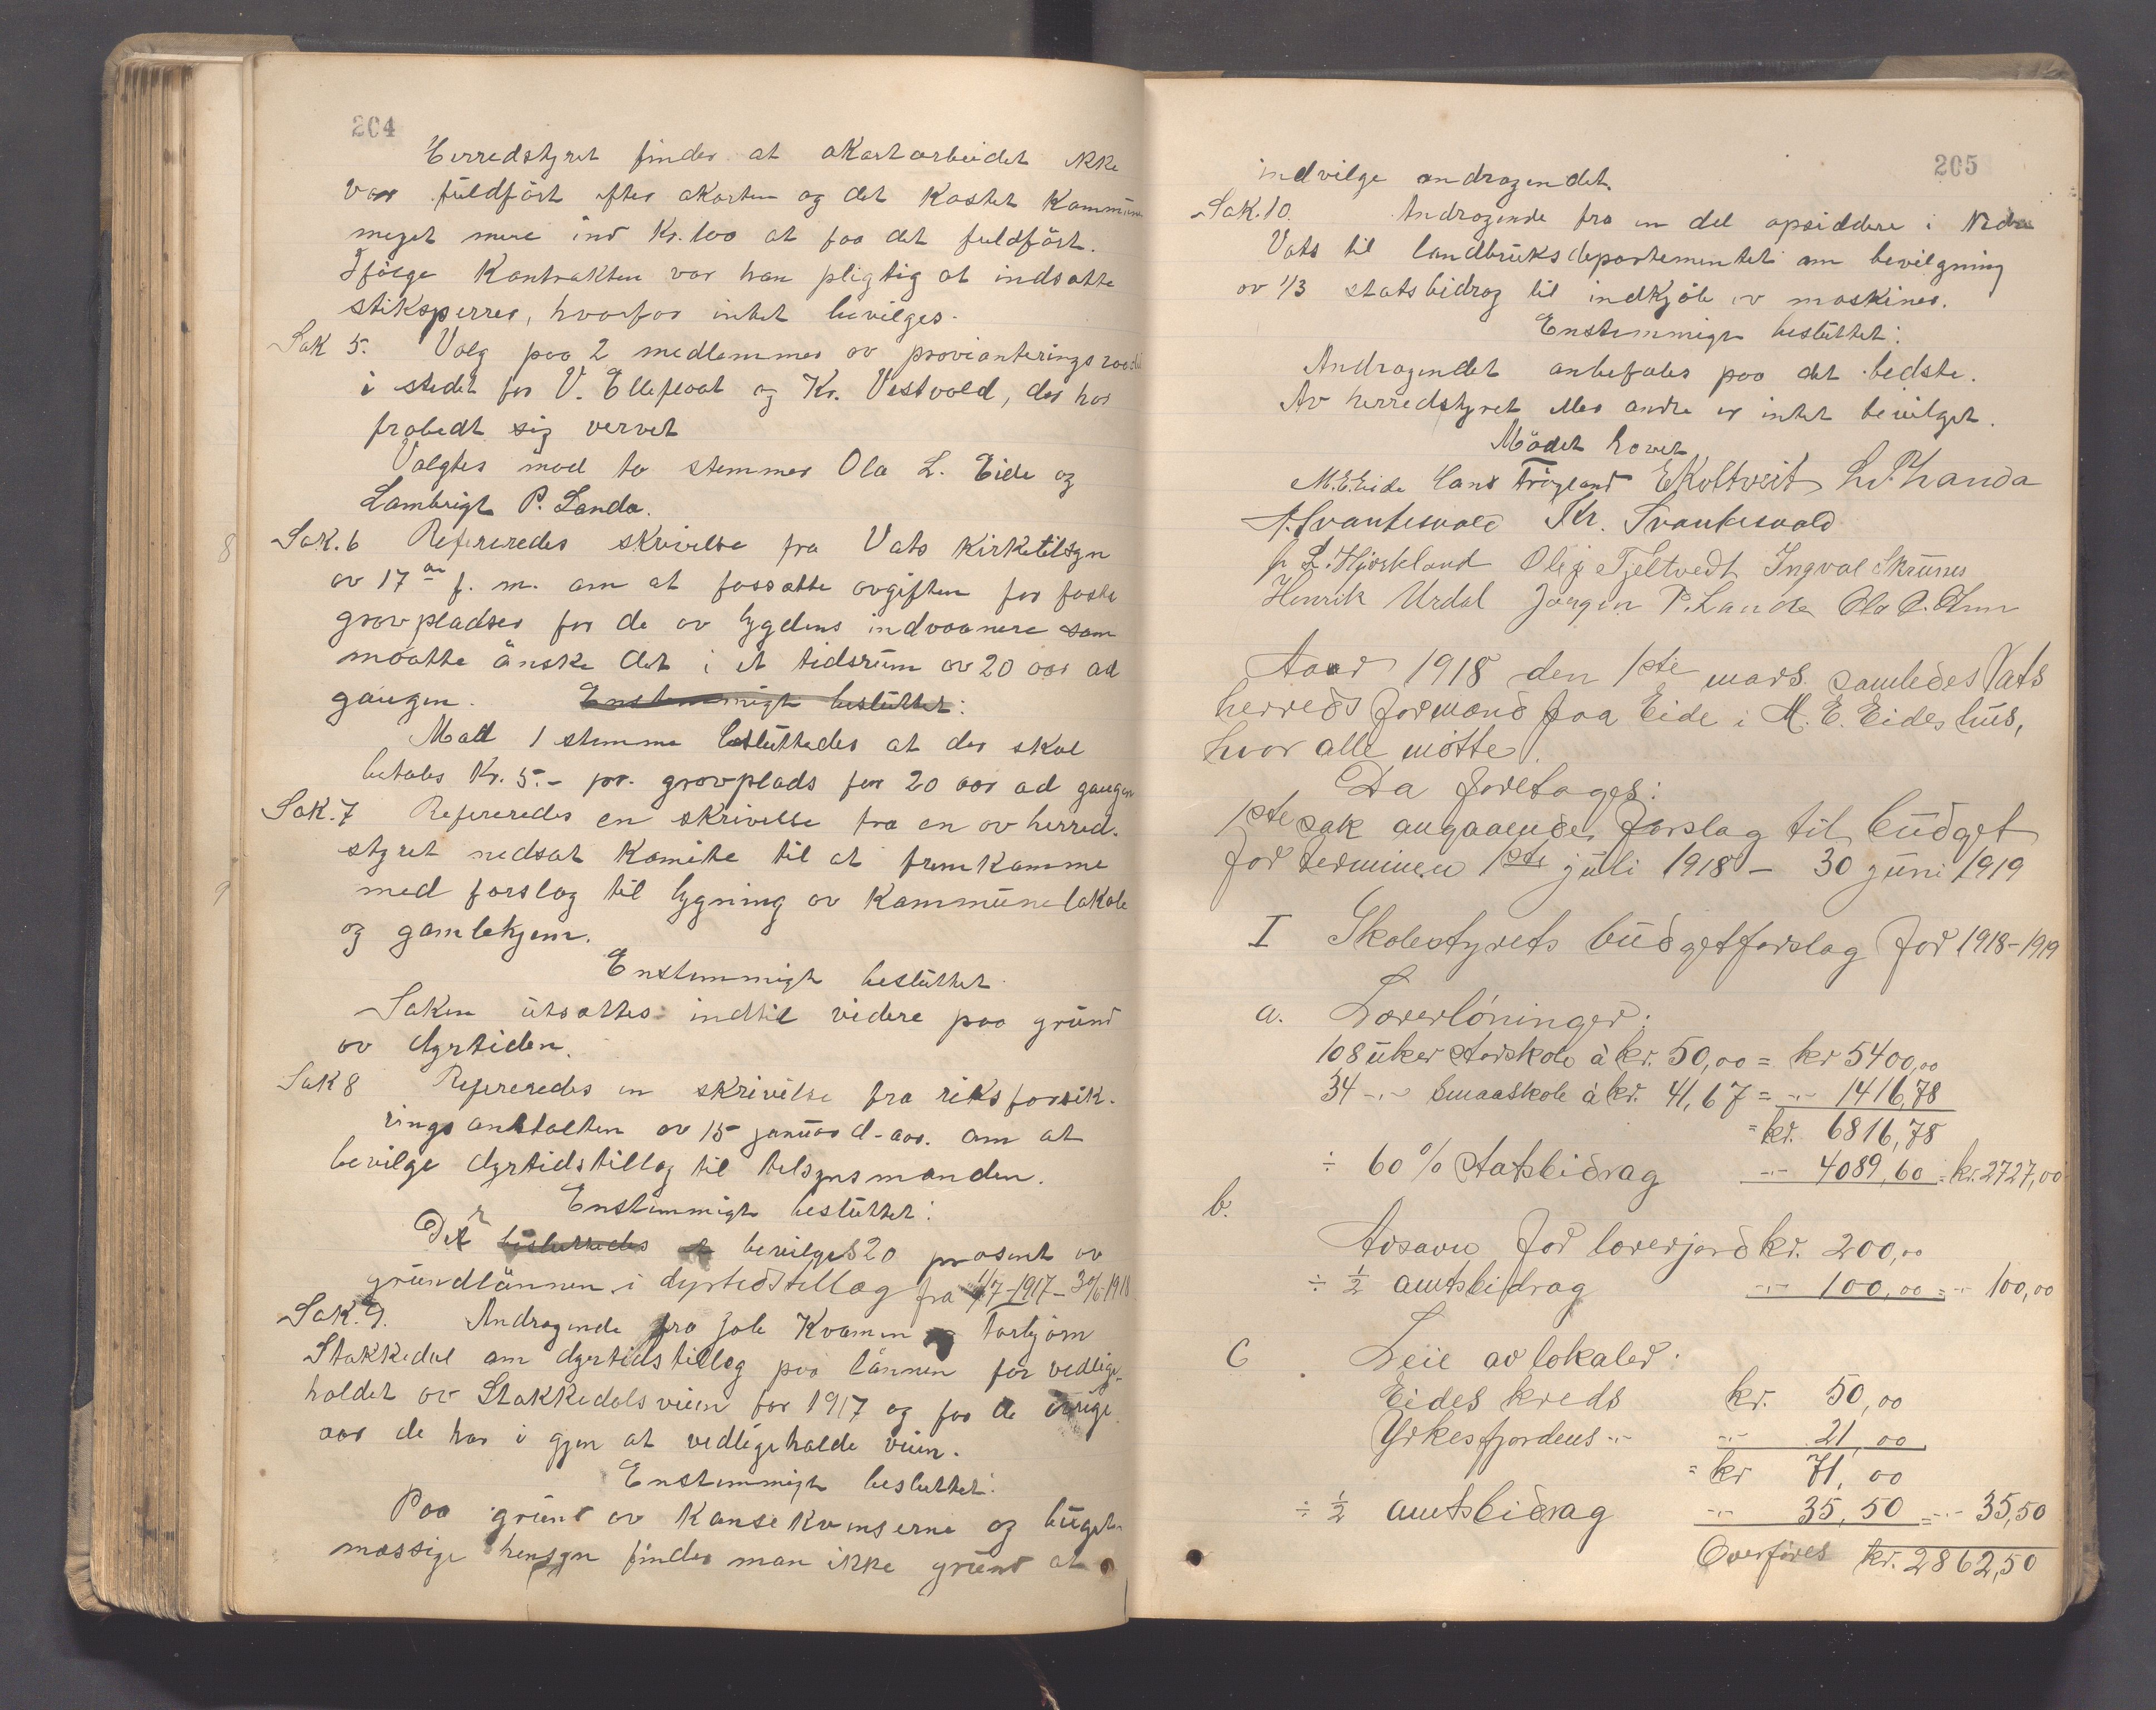 204
Herredstyret finder at akortarbeidet ikke
var fuldført efter akorten og det kostet kommunen
meget mere ind Kr. 100 at faa det fuldført.
Ifølge Kontrakten var han pligtig at indsætte
stiksperrer, hvorfor intet bevilges.
Sak 5. Valg paa 2 medlemmer av provianteringsraadet
i stedet for V. Ellefloat og Kr. Vestvold, der har
frabedt sig vervet
Valgtes mod to stemmer Ola L. Eide og
Lambrigt P. Landa.
Sak. 6 Refereredes skrivelse fra Vats Kirketilsyn
av 17de f. m. om at fassætte avgiften for faste
gravpladser for de av bygdens indvaanere som
maatte ønske det i et tidsrum av 20 aar ad
gangen. Enstemmigt besluttet:
Mod 1 stemme besluttedes at der skal
betales Kr. 5.- pr. gravplads for 20 aar ad gangen
Sak. 7 Refereredes en skrivelse fra en av herred-
styret nedsat Komite til at fremkomme
med forslag til bygning av Kommunelokale
og gamlehjem.
Enstemmigt besluttet
Saken utsættes indtil videre paa grund
av dyrtiden.
Sak 8 Refereredes en skrivelse fra riksforsik-
ringsanstalten av 15 januar d. aar. om at
bevilge dyrtidstillæg til tilsynsmanden.
Enstemmigt besluttet:
Der besluttedes at bevilges 20 prosent av
grundlønnen i dyrtidstillæg fra 1/7-1917-30/6-1918
Sak. 9. Andragende fra Jole Kvamen og Torbjørn
Stakkedal om dyrtidstillæg paa lønnen for vedlige-
holdet av Stakkedalsveien for 1917 og for de øvrige
aar de har i gjen at vedligeholde veien.
Enstemmigt besluttet:
Paa grund av Konsekvenserne og buget-
mæssige hensyn finder man ikke grund at
205
indvilge andragendet.
Sak. 10. Andragende fra en del opsiddere i Nedre
Vats til landbruksdepartementet om bevilgning
av 1/3 statsbidrag til indkjøb av maskiner.
Enstemmigt besluttet:
Andragendet anbefales paa det bedste.
Av herredstyret eller andre er intet bevilget.
Mødet hævet
M. E. Eide Hans Frøyland E Koltveit L. P. Landa
A. Svantesvold Kr. Svantesvold
L. Hjorteland Ole J Fjeltvedt Ingval Skrunes
Henrik Urdal Jørgen P. Landa Ola O.
Aaar 1918 den 1ste mars samledes Vats
herreds formand paa Eide i M. E. Eides hus,
hvor alle møtte.
Da foretages:
1ste sak angaaende forslag til budget
for terminen 1ste juli 1918 – 30 juni 1919
I Skolestyrets budgetforslag for 1918–1919
a. Lærerlöninger:
108 uker storskole à kr. 50,00 = kr 5400,00
34 -"- Smaaskole à kr. 41,67 = -"- 1416,78
= kr. 6816,78
÷ 60 % statsbidrag -"- 4089,60 = kr. 2727,00
b.
Avsavn for lærerjord kr. 200,00
÷ 1/2 amtsbidrag -"- 100,00 = -"- 100,00
C Leie av lokaler:
Eides kreds kr. 50,00
Yrkesfjordens -"- -"- 21,00
= kr 71,00
÷ 1/2 amtsbidrag -"- 35,50 = -"- 35,50
Overføres kr. 2862,50